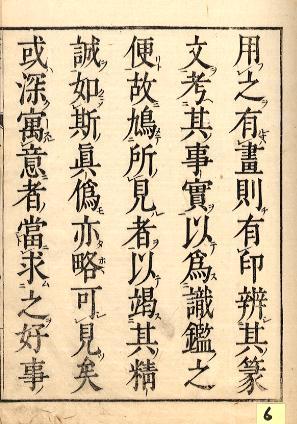 用之有畫則有印辨其篆
文考其事實以爲識鑑之
便故鳩所見者以竭其精
誠如斯眞僞亦略可見矣
或深寓意者當求之好事
6